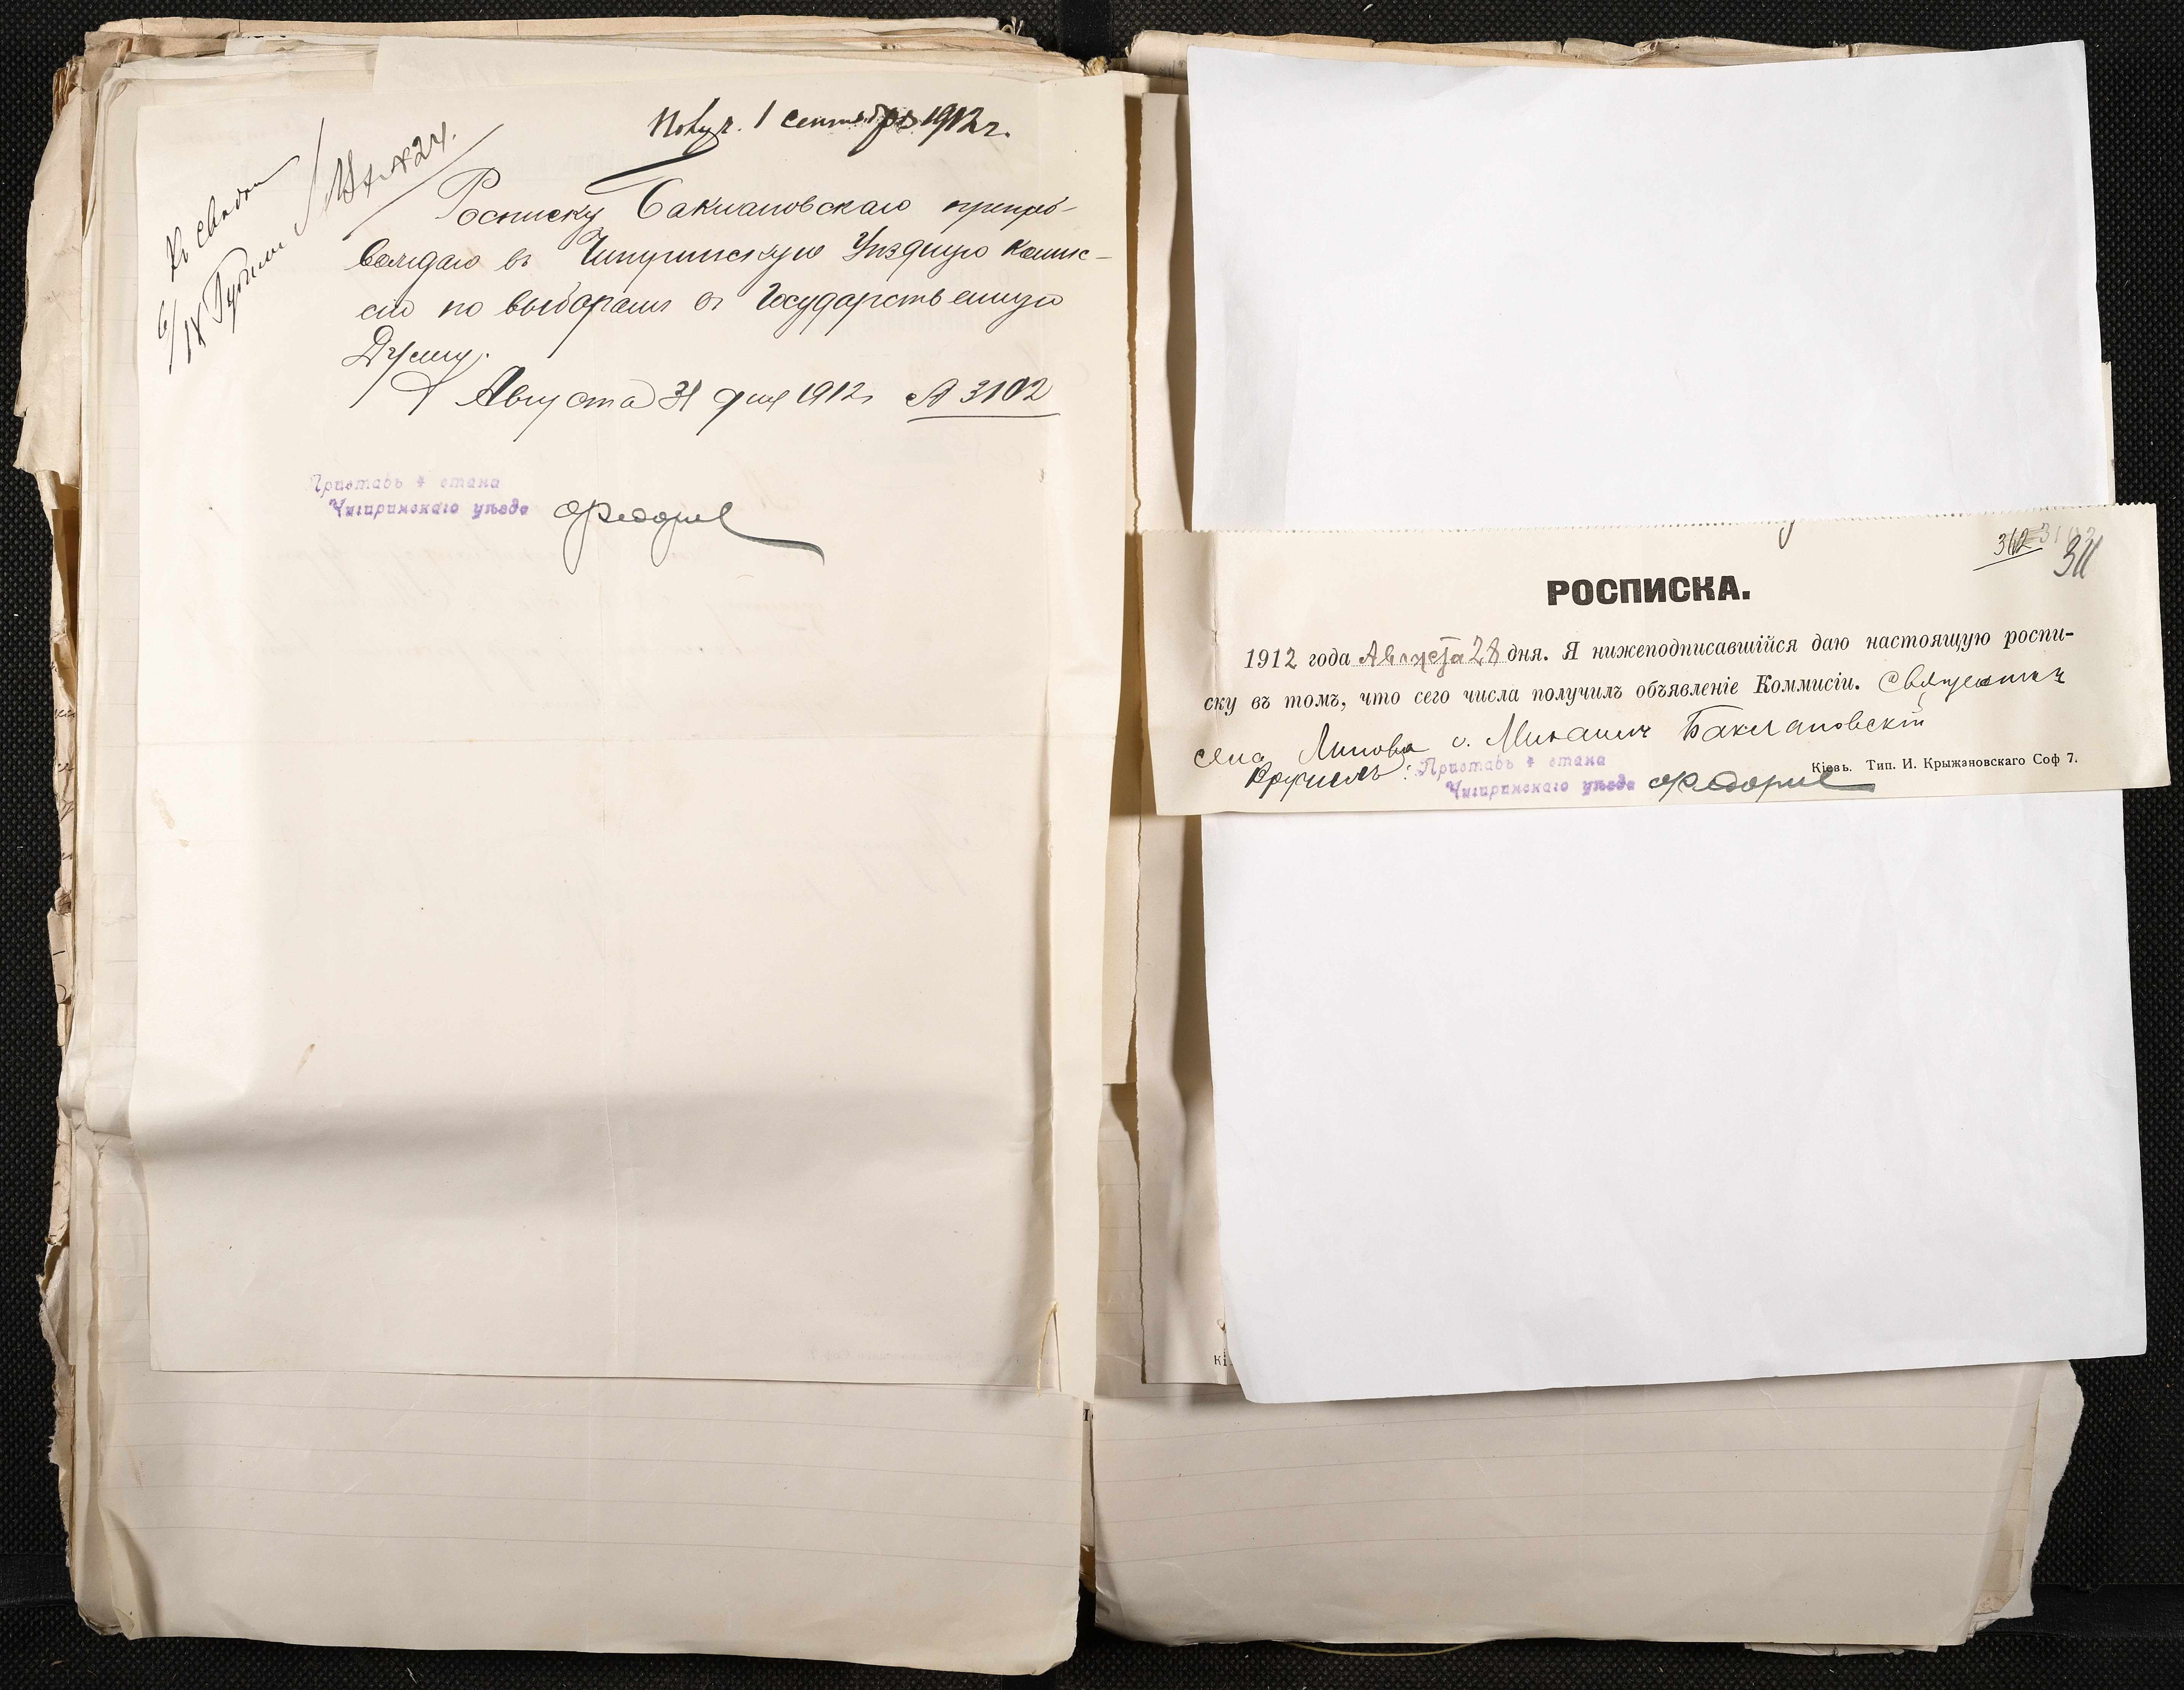 Получ. 1 сентября 1912 г.
Къ свѣдѣн
6/IX
№ 24.
Росписку Баклановскаго препро-
вождаю въ Чигиринскую Уѣздную Комис-
сію по выборамъ въ Государственную
Думу.
Августа 31 дня 1912 г. № 3102
Приставъ 4 стана
Чигиринскаго уѣзда
312
311
РОСПИСКА.
1912 года Августа 28 дня. Я нижеподписавшійся даю настоящую роспи-
ску въ томъ, что сего числа получилъ объявленіе Коммисіи. Священникъ
села Липова о. Михаилъ Баклановскій
Вручилъ: Приставъ 4 стана
Чигиринскаго уѣзда
Кіевъ. Тип. И. Крыжановскаго Соф 7.